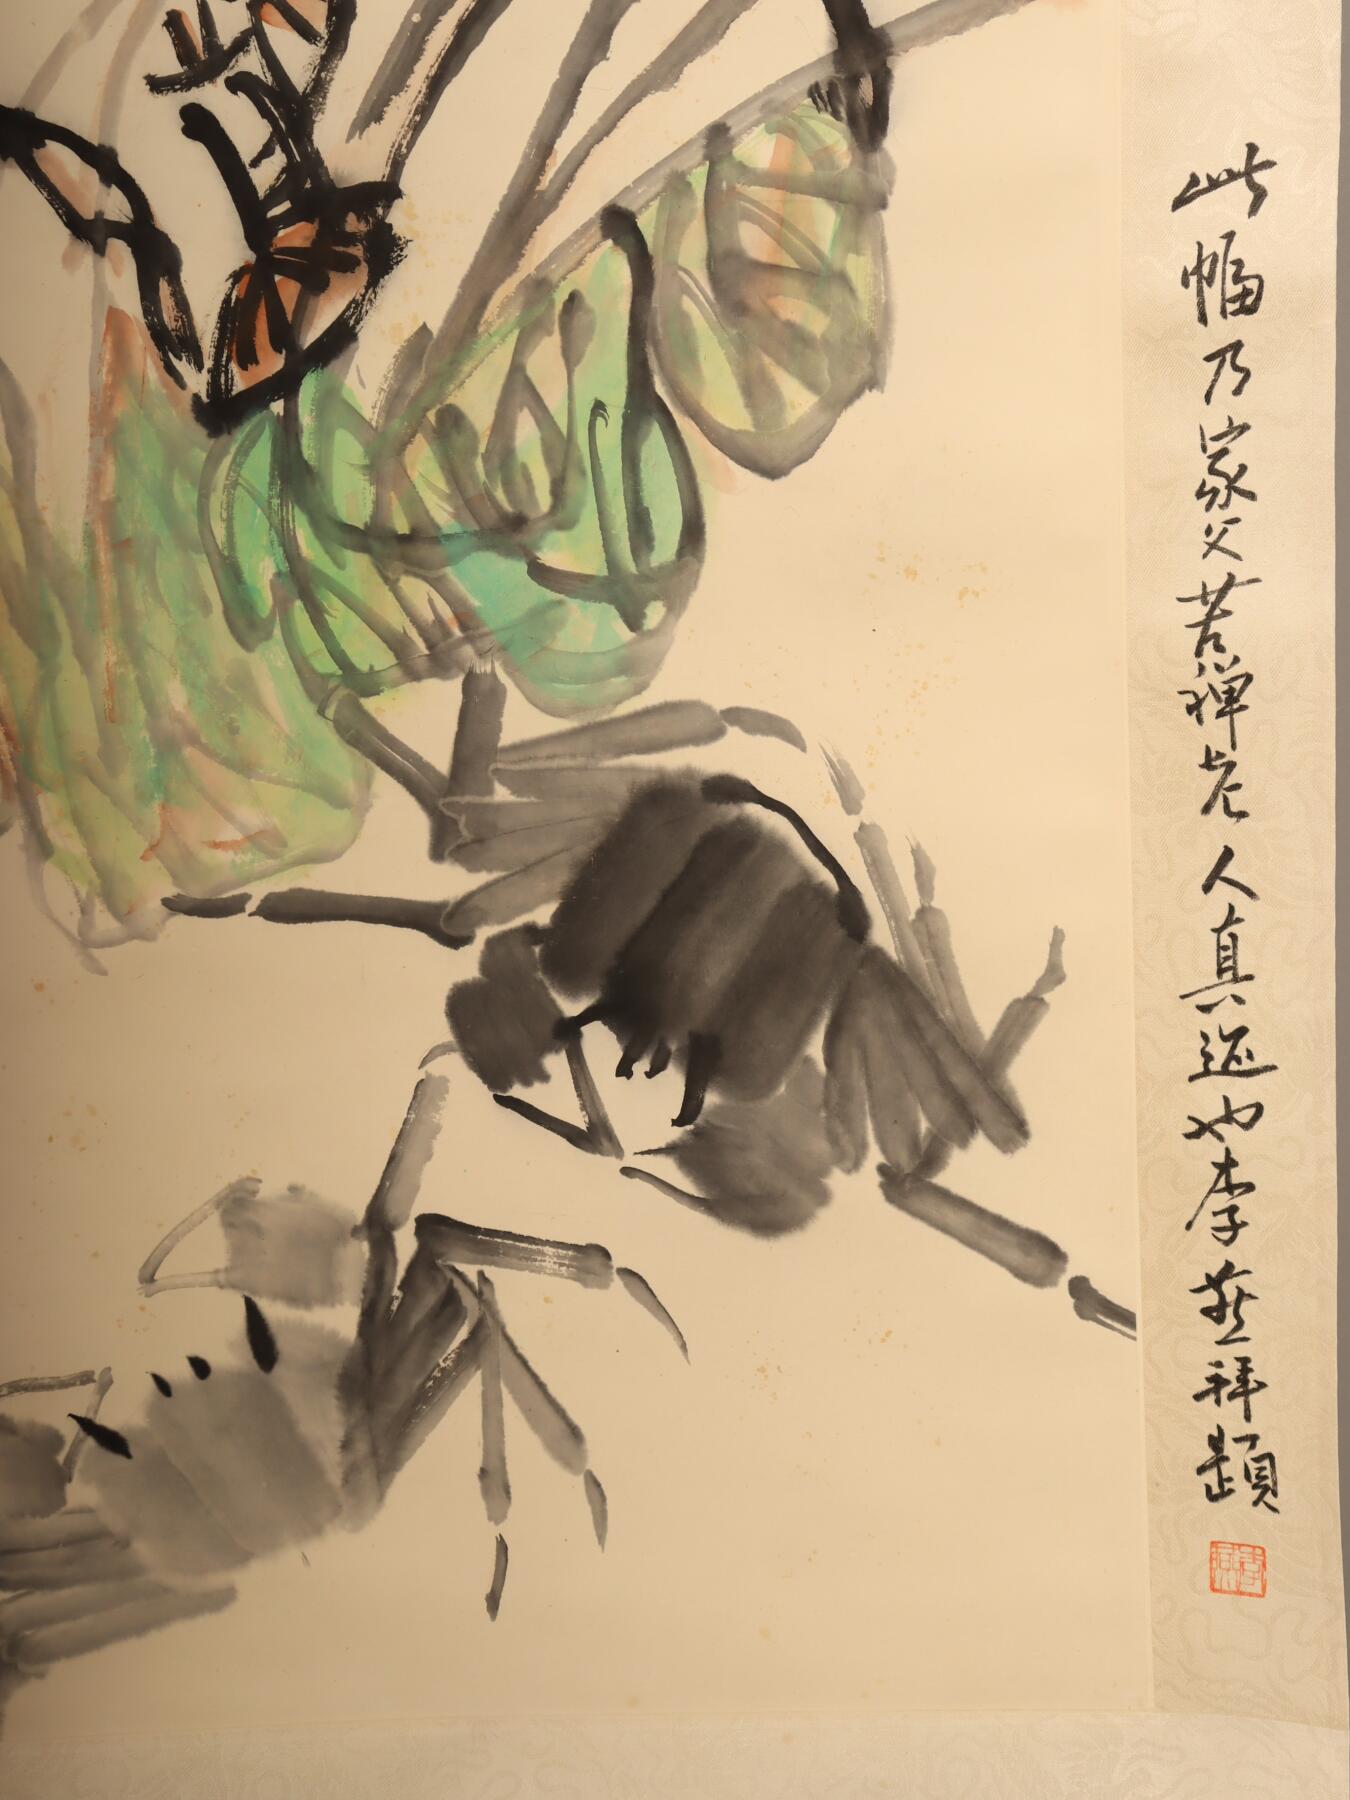 此幅乃家父苦禅老人真迹也李燕拜题